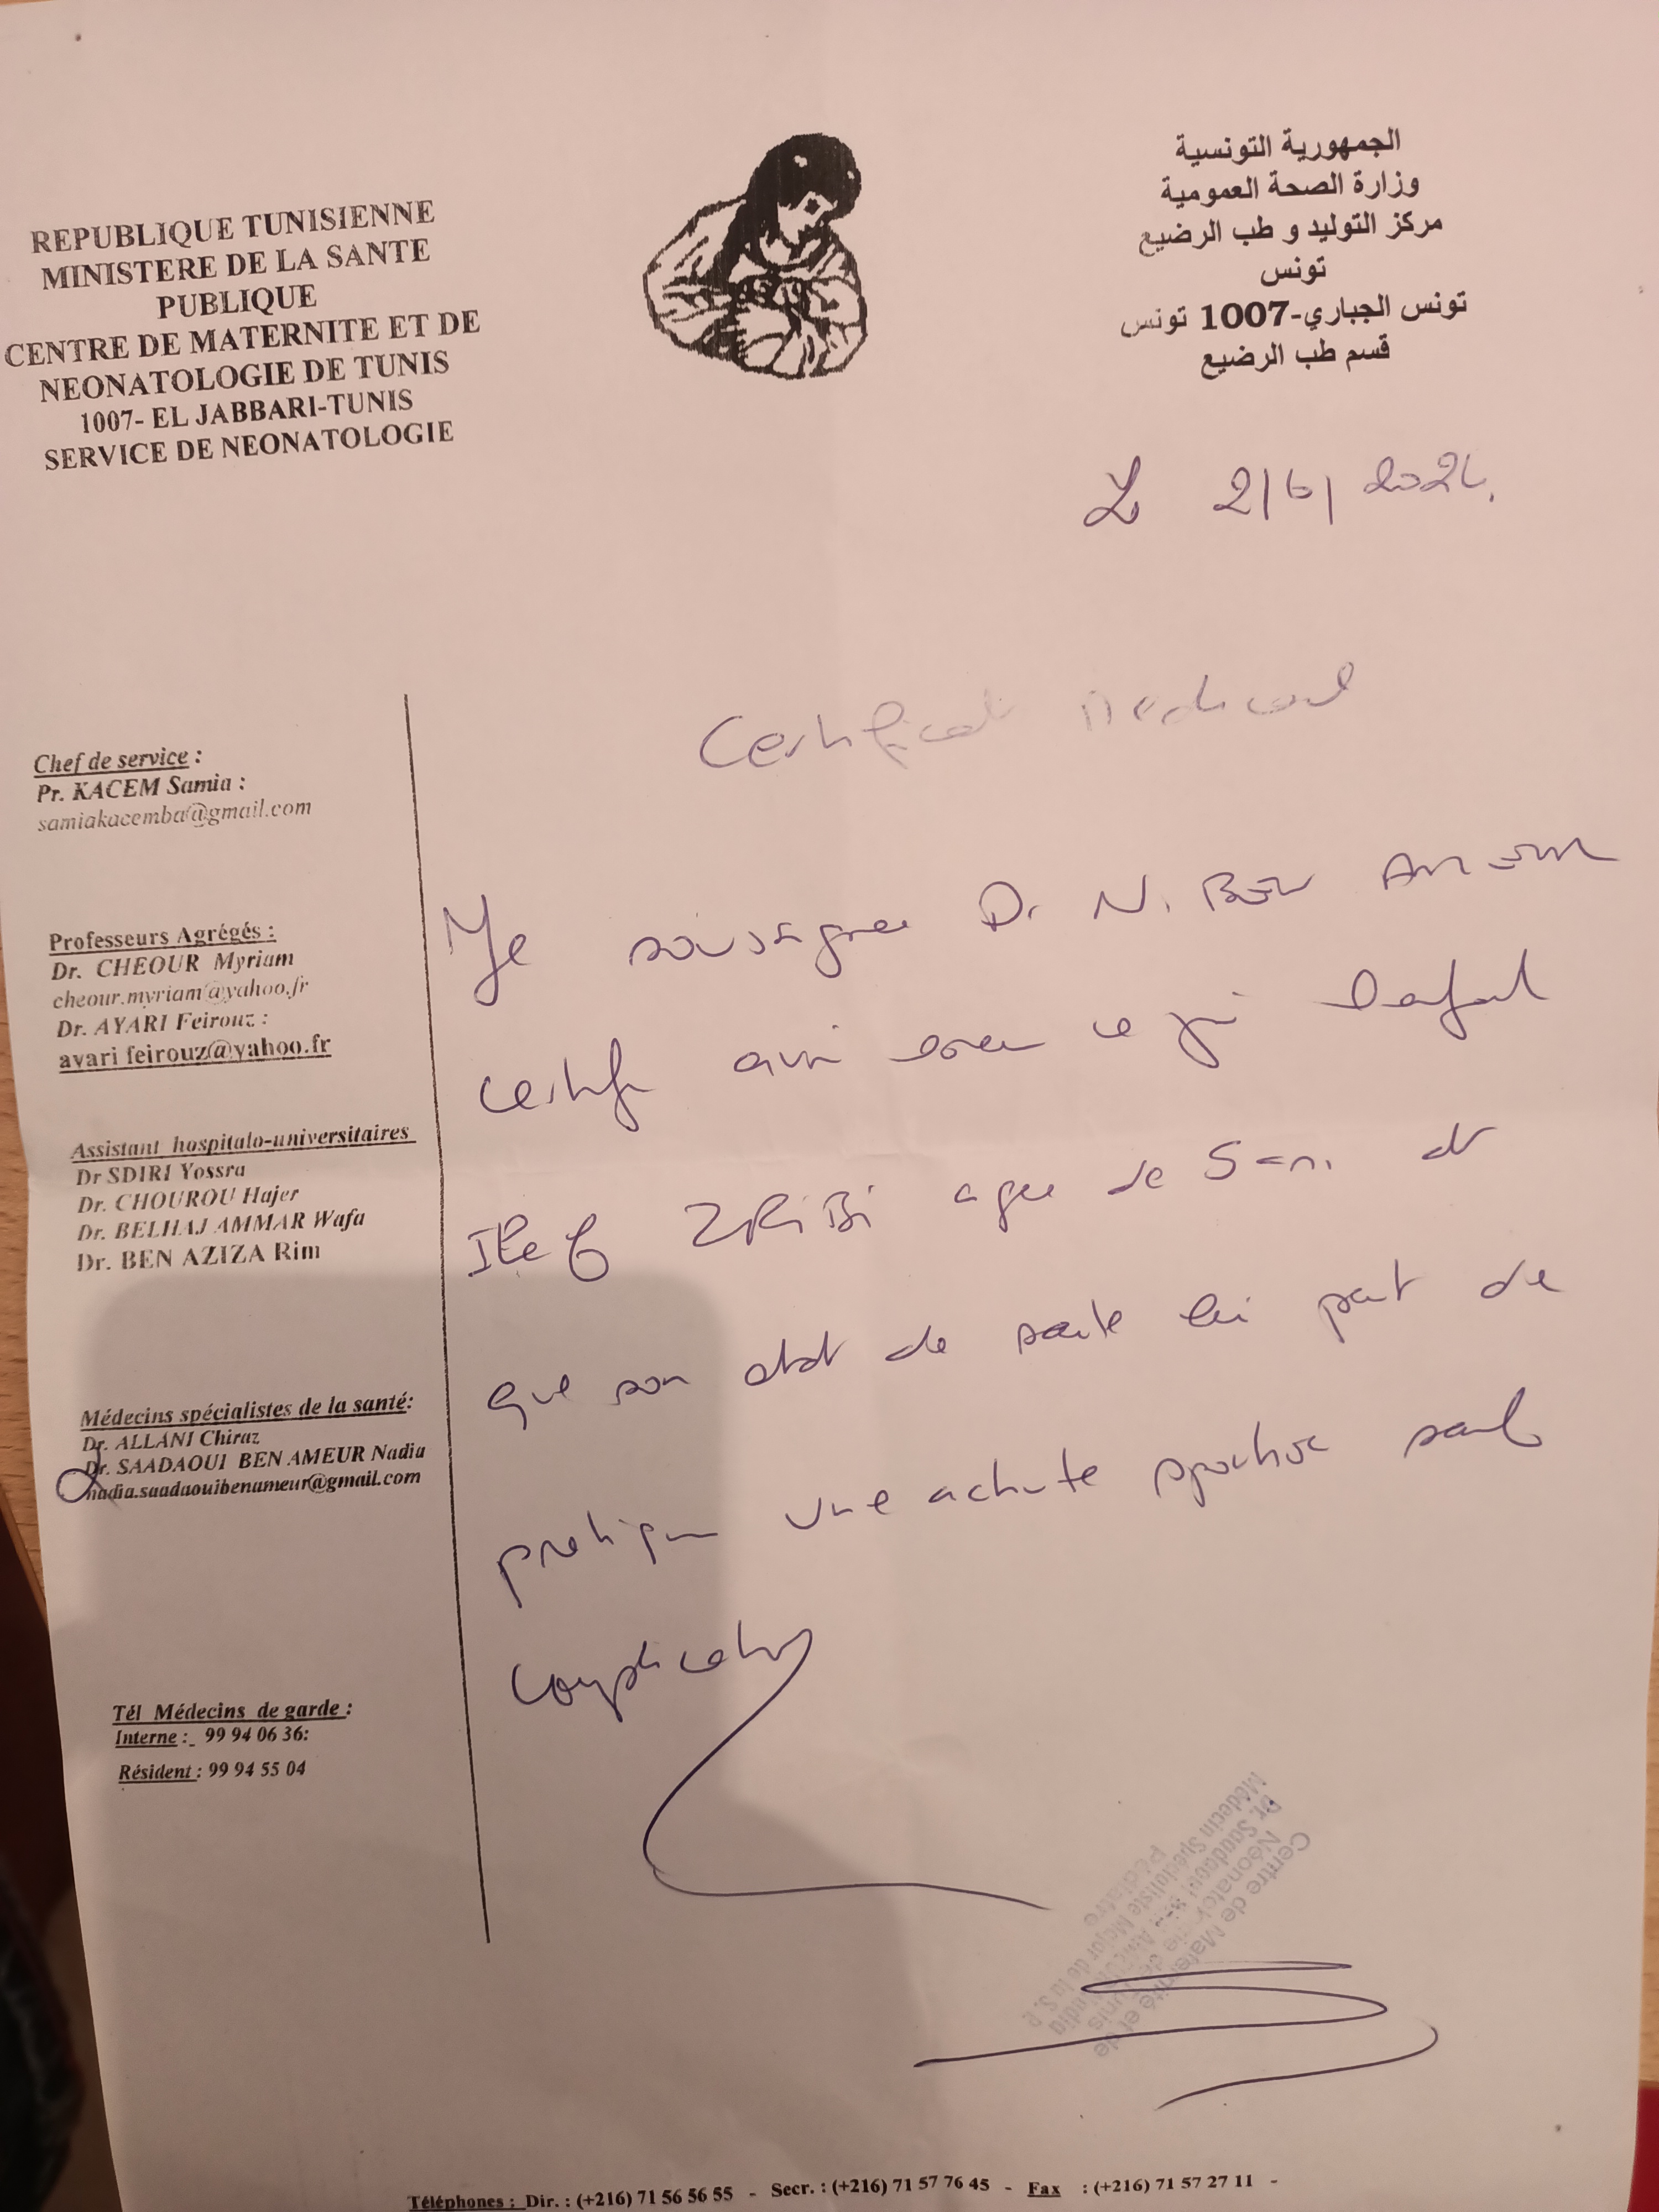 REPUBLIQUE TUNISIENNE
MINISTERE DE LA SANTE
PUBLIQUE
CENTRE DE MATERNITE ET DE
NEONATOLOGIE DE TUNIS
1007- EL JABBARI-TUNIS
SERVICE DE NEONATOLOGIE
الجمهورية التونسية
وزارة الصحة العمومية
مركز التوليد و طب الرضيع
تونس
تونس الجباري-1007 تونس
قسم طب الرضيع
2/6/
Certificat Medical
Chef de service :
Pr. KACEM Samia :
samiakacemba@gmail.com
Professeurs Agrégés :
Dr. CHEOUR Myriam
cheour.myriam@yahoo.fr
Dr. AYARI Feirouz :
ayari feirouz@yahoo.fr
Assistant hospitalo-universitaires
Dr SDIRI Yossra
Dr. CHOUROU Hajer
Dr. BELHAJ AMMAR Wafa
Dr. BEN AZIZA Rim
Médecins spécialistes de la santé:
Dr. ALLANI Chiraz
Dr. SAADAOUI BEN AMEUR Nadia
nadia.saadaouibenameur@gmail.com
Tél Médecins de garde :
Interne : 99 94 06 36:
Résident : 99 94 55 04
Je soussignee Dr N. Ben
certifie avoir ce jour l'enfant
ZRiBi agee de 5 ans et
que son etat de sante lui de
pratiquer une sportive sans
complication
Centre de Maternité et de
Néonatologie de Tunis
Dr. Saadaoui Ben Ameur Nadia
Médecin Spécialiste Major de la S.P
Pédiatre
Téléphones : Dir. : (+216) 71 56 56 55 - Secr. : (+216) 71 57 76 45 - Fax : (+216) 71 57 27 11 -